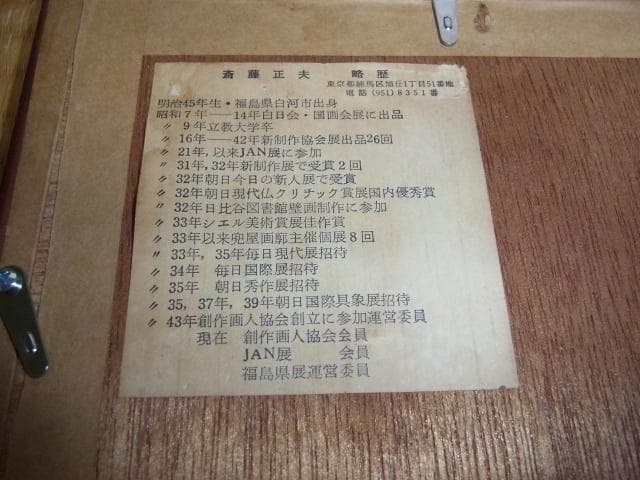 斎藤正夫 略歴
東京都練馬区旭丘1丁目51番地
電話(951)8351番
明治45年生・福島県白河市出身
昭和7年――14年白日会・国画会展に出品
〃 9年立教大学卒
〃 16年――42年新制作協会展出品26回
〃 21年,以来JAN展に参加
〃 31年,32年新制作展で受賞2回
〃 32年朝日今日の新人展で受賞
〃 32年朝日現代仏クリチック賞展国内優秀賞
〃 32年日比谷図書館壁画制作に参加
〃 33年シエル美術賞展佳作賞
〃 33年以来兜屋画廓主催個展8回
〃 33年,35年毎日現代展招待
〃 34年 毎日国際展招待
〃 35年 朝日秀作展招待
〃 35,37年,39年朝日国際具象展招待
〃 43年創作画人協会創立に参加運営委員
現在 創作画人協会会員
JAN展 会員
福島県展運営委員